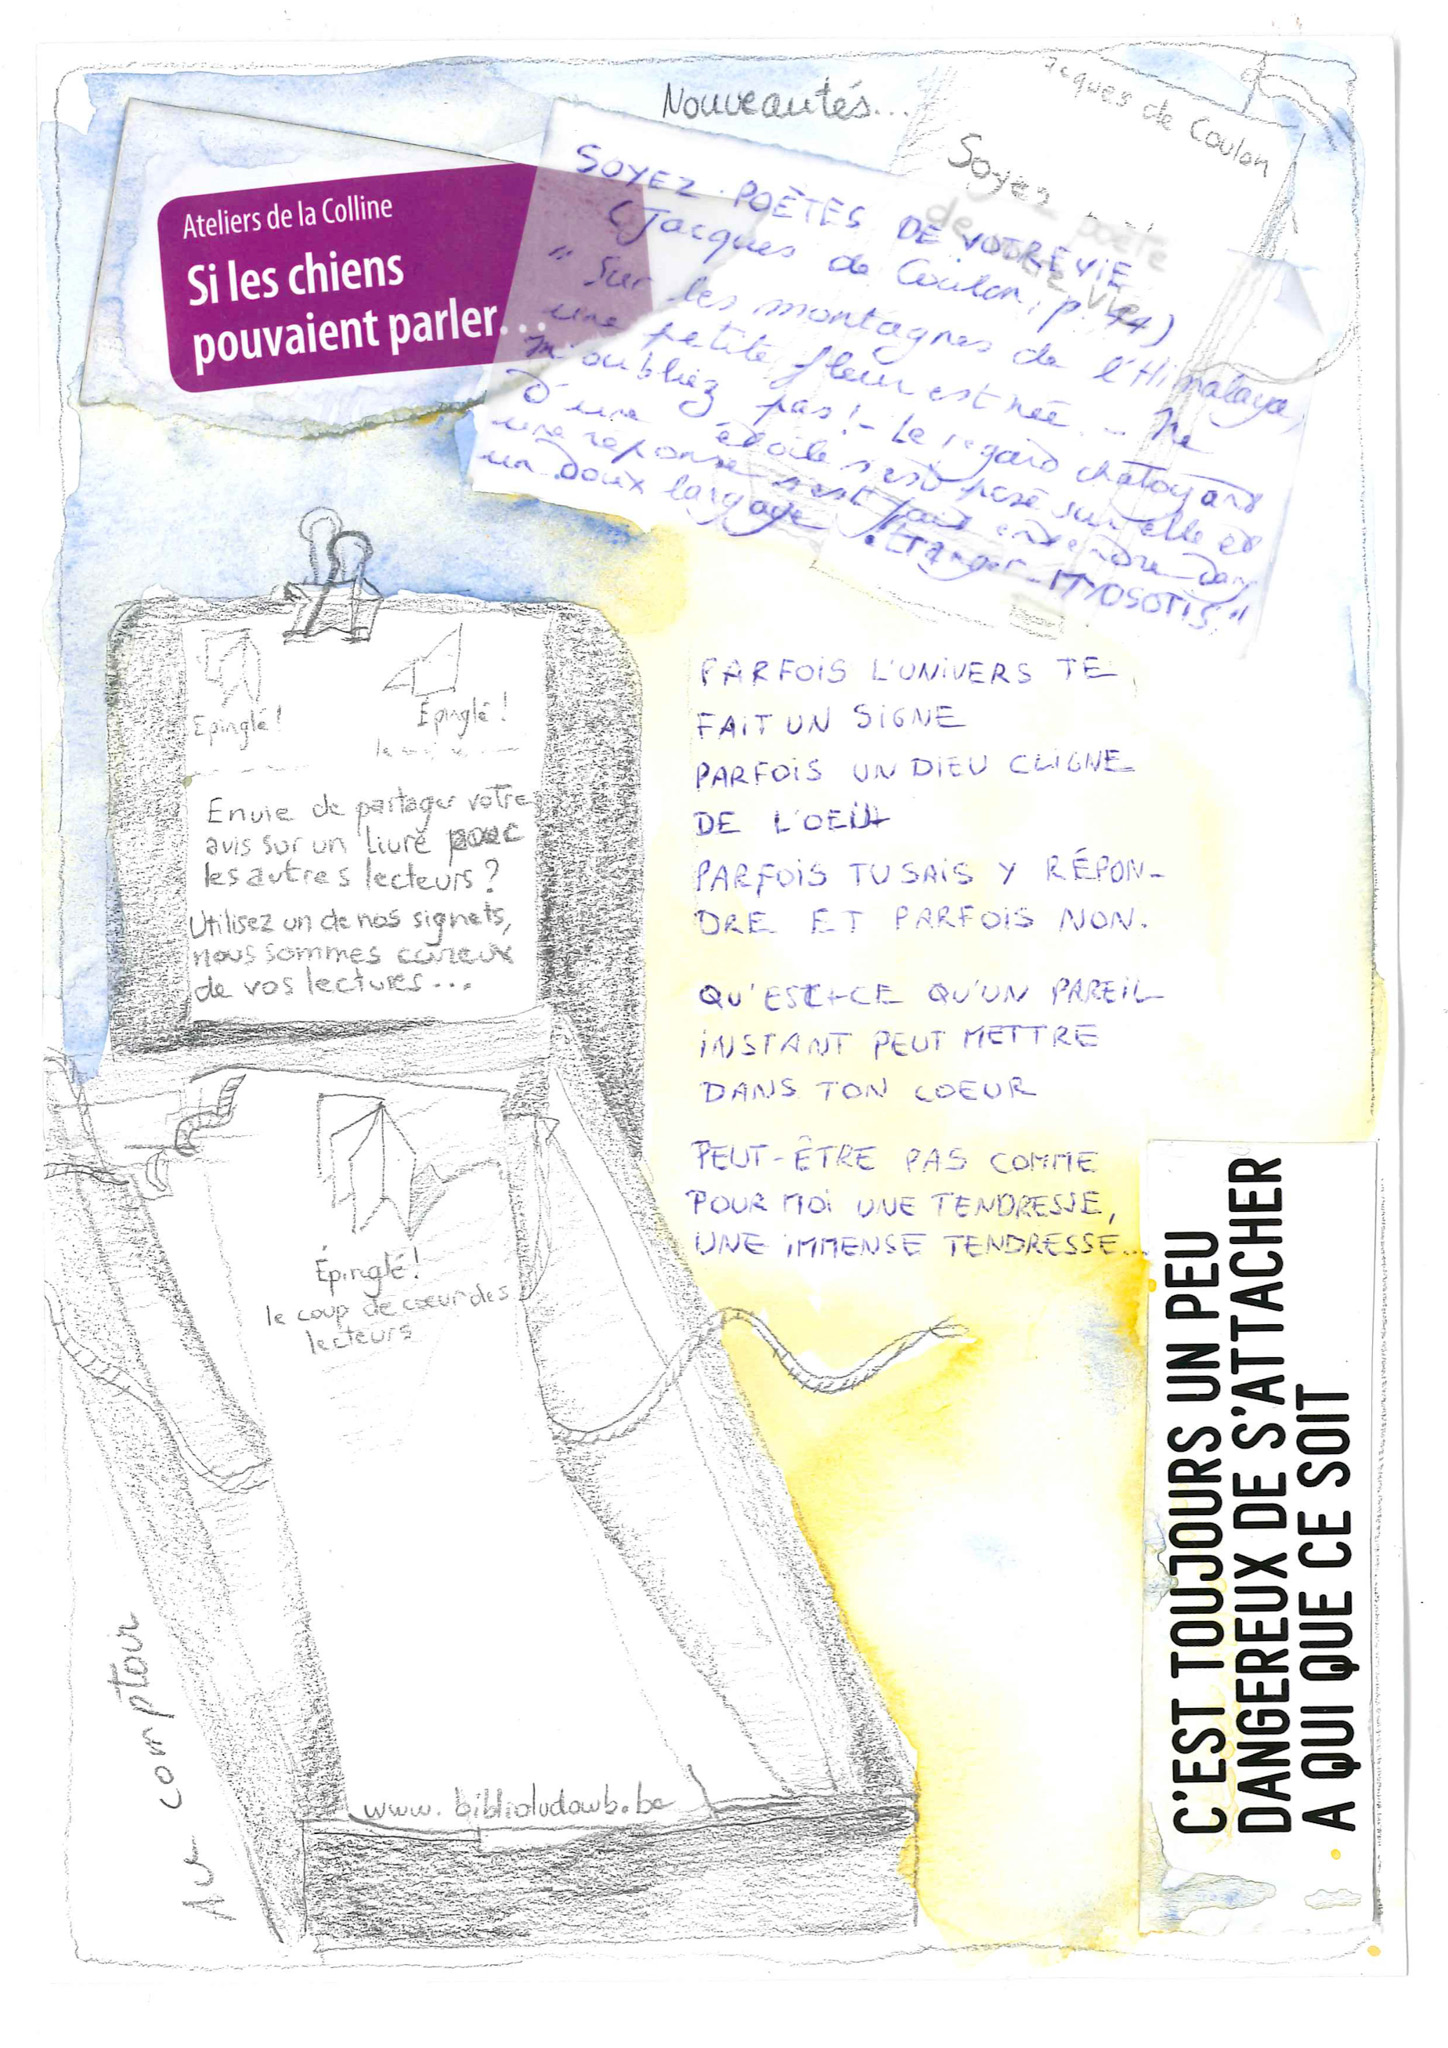 Nouveautés...
Jacques de Coulon
Soyez poète
de votre vie
Ateliers de la Colline
Si les chiens
pouvaient parler...
SOYEZ POÈTES DE VOTRE VIE
(Jacques de Coulon, p. 44)
"Sur les montagnes de l'Himalaya,
une petite fleur est née. - Ne
m'oubliez pas! - Le regard chatoyant
d'une étoile s'est posé sur elle et
une réponse s'est fait entendre dans
un doux langage étranger - MYOSOTIS."
Épinglé!
Épinglé!
Envie de partager votre
avis sur un livre pour
les autres lecteurs?
Utilisez un de nos signets,
nous sommes curieux
de vos lectures...
Épinglé!
le coup de cœur des
lecteurs
www.biblioludowb.be
Au comptoir
PARFOIS L'UNIVERS TE
FAIT UN SIGNE
PARFOIS UN DIEU CLIGNE
DE L'OEIL
PARFOIS TU SAIS Y RÉPON-
DRE ET PARFOIS NON.
QU'EST-CE QU'UN PAREIL
INSTANT PEUT METTRE
DANS TON COEUR
PEUT-ÊTRE PAS COMME
POUR MOI UNE TENDRESSE,
UNE IMMENSE TENDRESSE...
C'EST TOUJOURS UN PEU
DANGEREUX DE S'ATTACHER
A QUI QUE CE SOIT